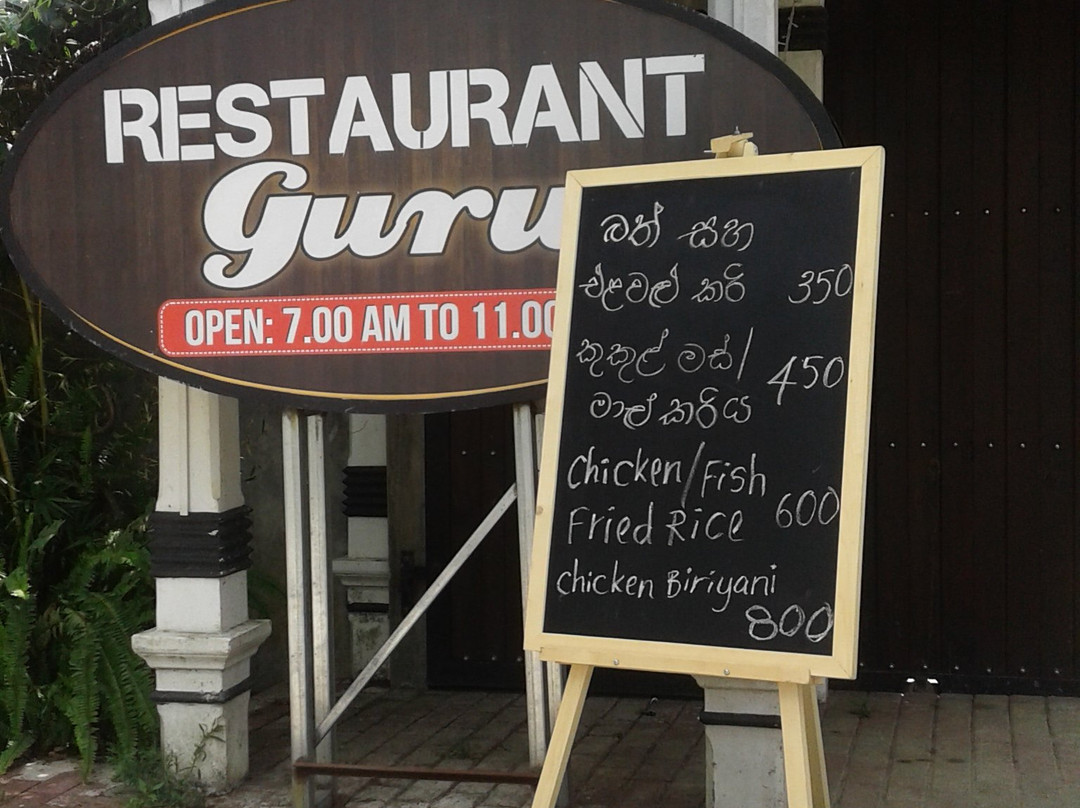 RESTAURANT
Guru
OPEN: 7.00 AM TO 11.00
බත් සහ
එළවළු කරි 350
කුකුල් මස්/
450
මාළු කරිය
Chicken/Fish
Fried Rice 600
Chicken Biriyani
800